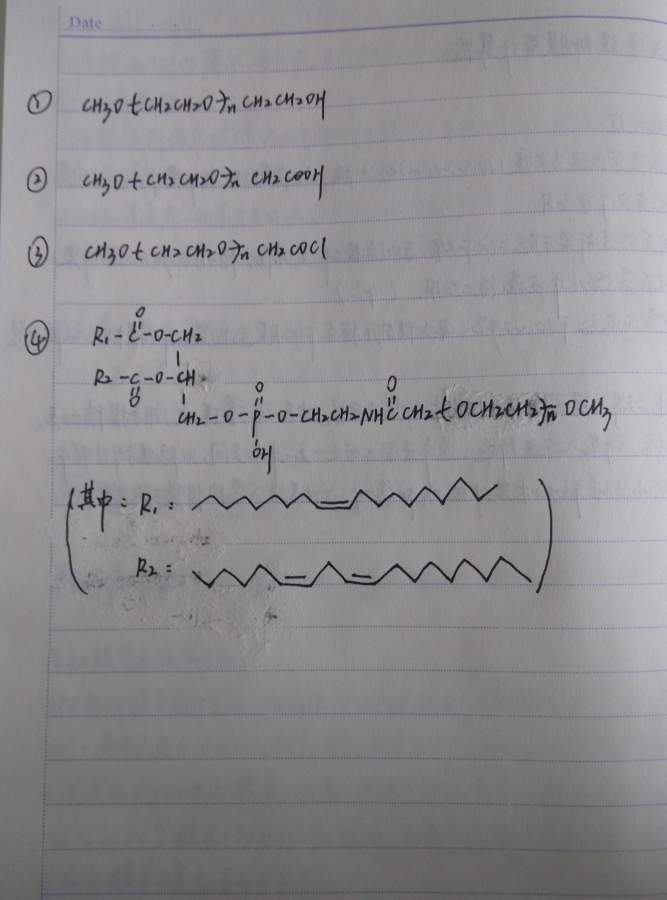 Date
① CH3O-(CH2CH2O-)n CH2CH2OH
② CH3O-(CH2CH2O-)n CH2COOH
③ CH3O-(CH2CH2O-)n CH2COCl
④ R1-C-O-CH2
O
R2-C-O-CH
O
CH2-O-P-O-CH2CH2NHCCH2-(OCH2CH2-)n OCH3
O
OH
O
(其中: R1:
R2: )